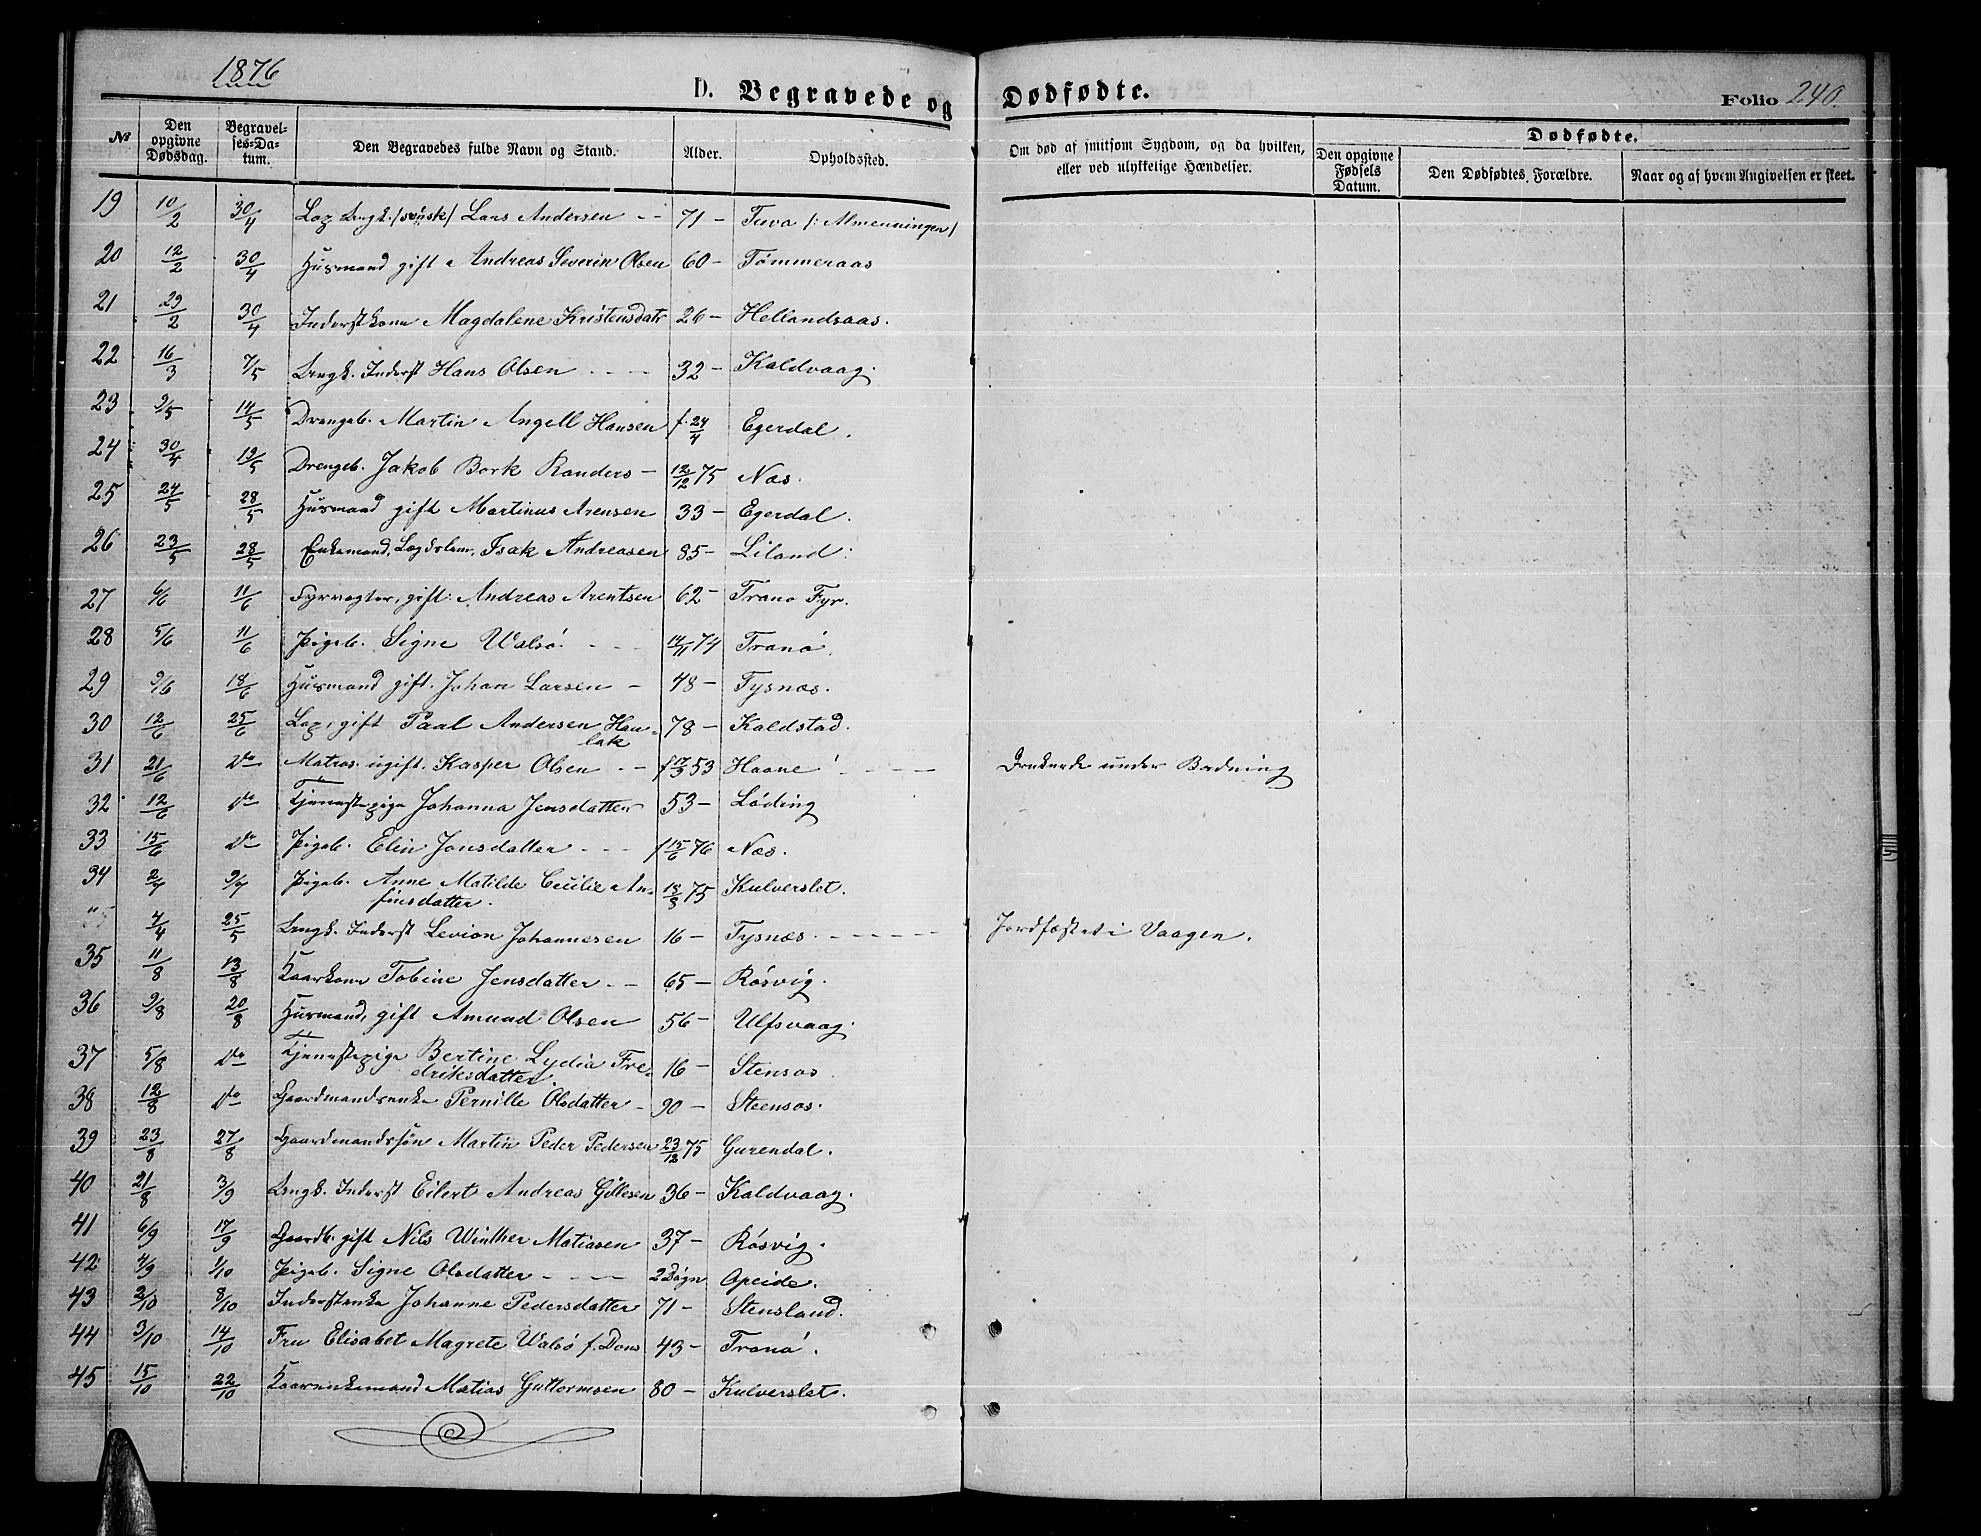 1876
D. Begravede og Dødfødte.
Folio 240.
№
Den opgivne Dødsdag.
Begravelses-Datum.
Den Begravedes fulde Navn og Stand.
Alder.
Opholdssted.
Om død af smitsom Sygdom, og da hvilken, eller ved ulykkelige Hændelser.
Dødfødte.
Den opgivne Fødsels Datum.
Den Dødfødtes Forældre.
Naar og af hvem Angivelsen er skeet.
19 10/2 30/4 Lap Lengk. (svensk) Lars Andersen -- 71 - Tuva /: Almenningen /
20 12/2 30/4 Husmand gift Andreas Severin Olsen 60 - Tømmeraas
21 29/2 30/4 Inderstkone Magdalene Kristensdatr 26 - Hellandsaas.
22 16/3 7/5 Inderst Hans Olsen 32 - Kaldvaag.
23 9/5 14/5 Drengeb. Martin Angell Hansen f. 24/4 Egerdal.
24 30/4 19/5 Drengeb. Jakob Bork Randers - 12/12 75 Næs.
25 24/5 28/5 Husmand gift Martinus Arensen 33 - Egerdal.
26 23/5 28/5 Enkemand, Lægdslem, Isak Andreasen 85 - Liland.
27 6/6 11/6 Fyrvogter, gift. Andreas Arentsen 62 - Tranø Fyr.
28 5/6 11/6 Pigeb. Signe Walsø. 14/11 74 Tranø.
29 9/6 18/6 Husmand gift. Johan Larsen - 48 - Tysnæs.
30 12/6 25/6 Lap, gift Paal Andersen Hau-
lak 78 - Kaldstad.
31 21/6 do Matros ugift. Kasper Olsen -- f 17/3 53 Haane Druknede under Badning
32 12/6 do Tjenestepige Johanna Jensdatter 53 - Løding
33 15/6 do Pigeb. Elin Jonsdatter f 15/6 76 Næs.
34 2/7 9/7 Pigeb. Anne Matilde Cecilie An-
finsdatter. 18/8 75 Kulverslet.
4/4 25/5 Inderst Levion Johannesen 16 - Tysnæs. Jordfæstet i Vaagen.
35 11/8 13/8 Kaarkone Tobine Jensdatter - 65 - Røsvig.
36 9/8 20/8 Husmand, gift Amund Olsen 56 - Ulfsvaag.
37 5/8 do Tjenestepige Bertine Lydia Fre-
driksdatter 16 - Stensos
38 12/8 do Gaardmandsenke Pernille Olsdatter - 90 - Steensos.
39 23/8 27/8 Gaardmandssøn Martin Peder Pedersen 23/12 75 Gurendal.
40 21/8 3/9 Inderst Eilert Andreas Gillesen 36 - Kaldvaag.
41 6/9 17/9 Gaardb. gift Nils Winther Matiasen 37 - Røsvig.
42 4/9 1/10 Pigeb. Signe Olsdatter 2 Døgn Opeide.
43 2/10 8/10 Inderstenke Johanne Pedersdatter 71 - Stensland.
44 3/10 14/10 Fru Elisabet Magrete Walsø f. Dons 43 - Tranø.
45 15/10 22/10 Kaarenkemand Matias Guttormsen 80 - Kulverslet.